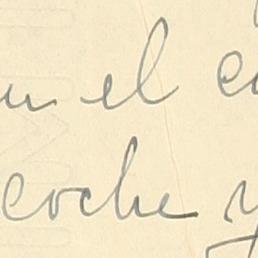 el
coche y